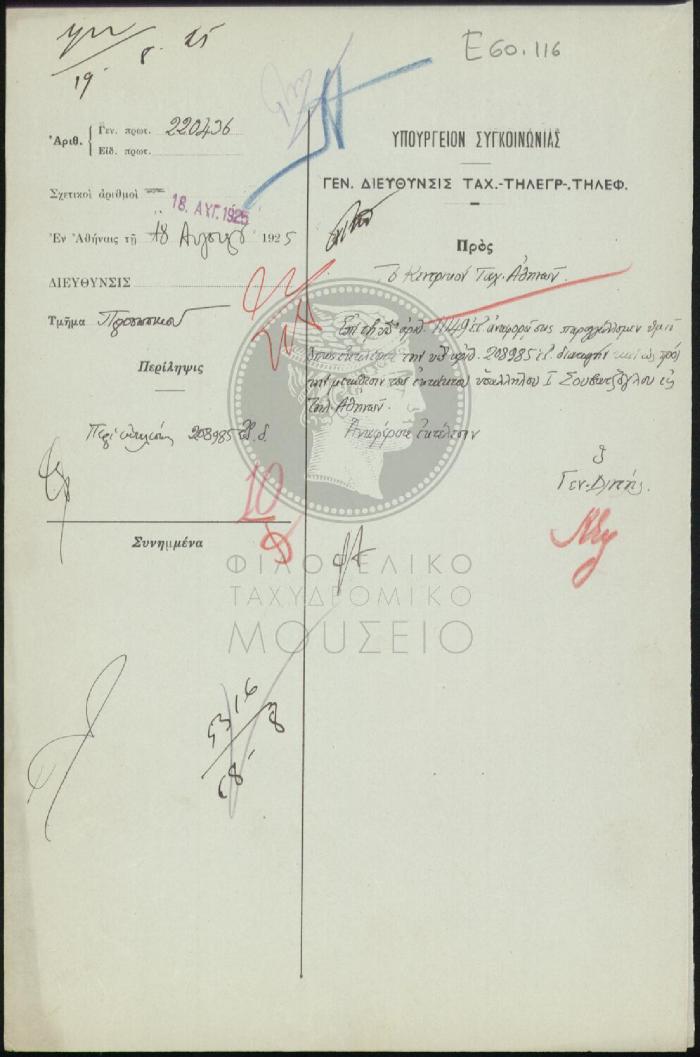 19 8 25
E60.116
Ἀριθ. Γεν. πρωτ. 220436
Εἰδ. πρωτ.
Σχετικοὶ ἀριθμοὶ
18. ΑΥΓ. 1925
Ἐν Ἀθήναις τῇ 18 Αυγούστου 1925
ΔΙΕΥΘΥΝΣΙΣ
Τμῆμα Προσωπικού
Περίληψις
Περί εκτελέσεως 208985 ε.ἔ. δ.
10
Συνημμένα
ΥΠΟΥΡΓΕΙΟΝ ΣΥΓΚΟΙΝΩΝΙΑΣ
ΓΕΝ. ΔΙΕΥΘΥΝΣΙΣ ΤΑΧ.-ΤΗΛΕΓΡ-.ΤΗΛΕΦ.
Πρὸς
Το Κεντρικον Ταχ. Αθηνών.
Επί της υπ' αριθ. 11149 ε.ἔ. αναφοράς σας παραγγέλλομεν υμίν
όπως εκτελέσητε την υπ' αριθ. 208985 ε.ἔ. διαταγήν και ως προς
την μετάθεσιν του εκτάκτου υπαλλήλου Ι. εις
Τηλ. Αθηνών.
Αναφέρατε εκτέλεσιν
Ο
Γεν. Δ/ντής.
ΦΙΛΟΤΕΛΙΚΟ
ΤΑΧΥΔΡΟΜΙΚΟ
ΜΟΥΣΕΙΟ